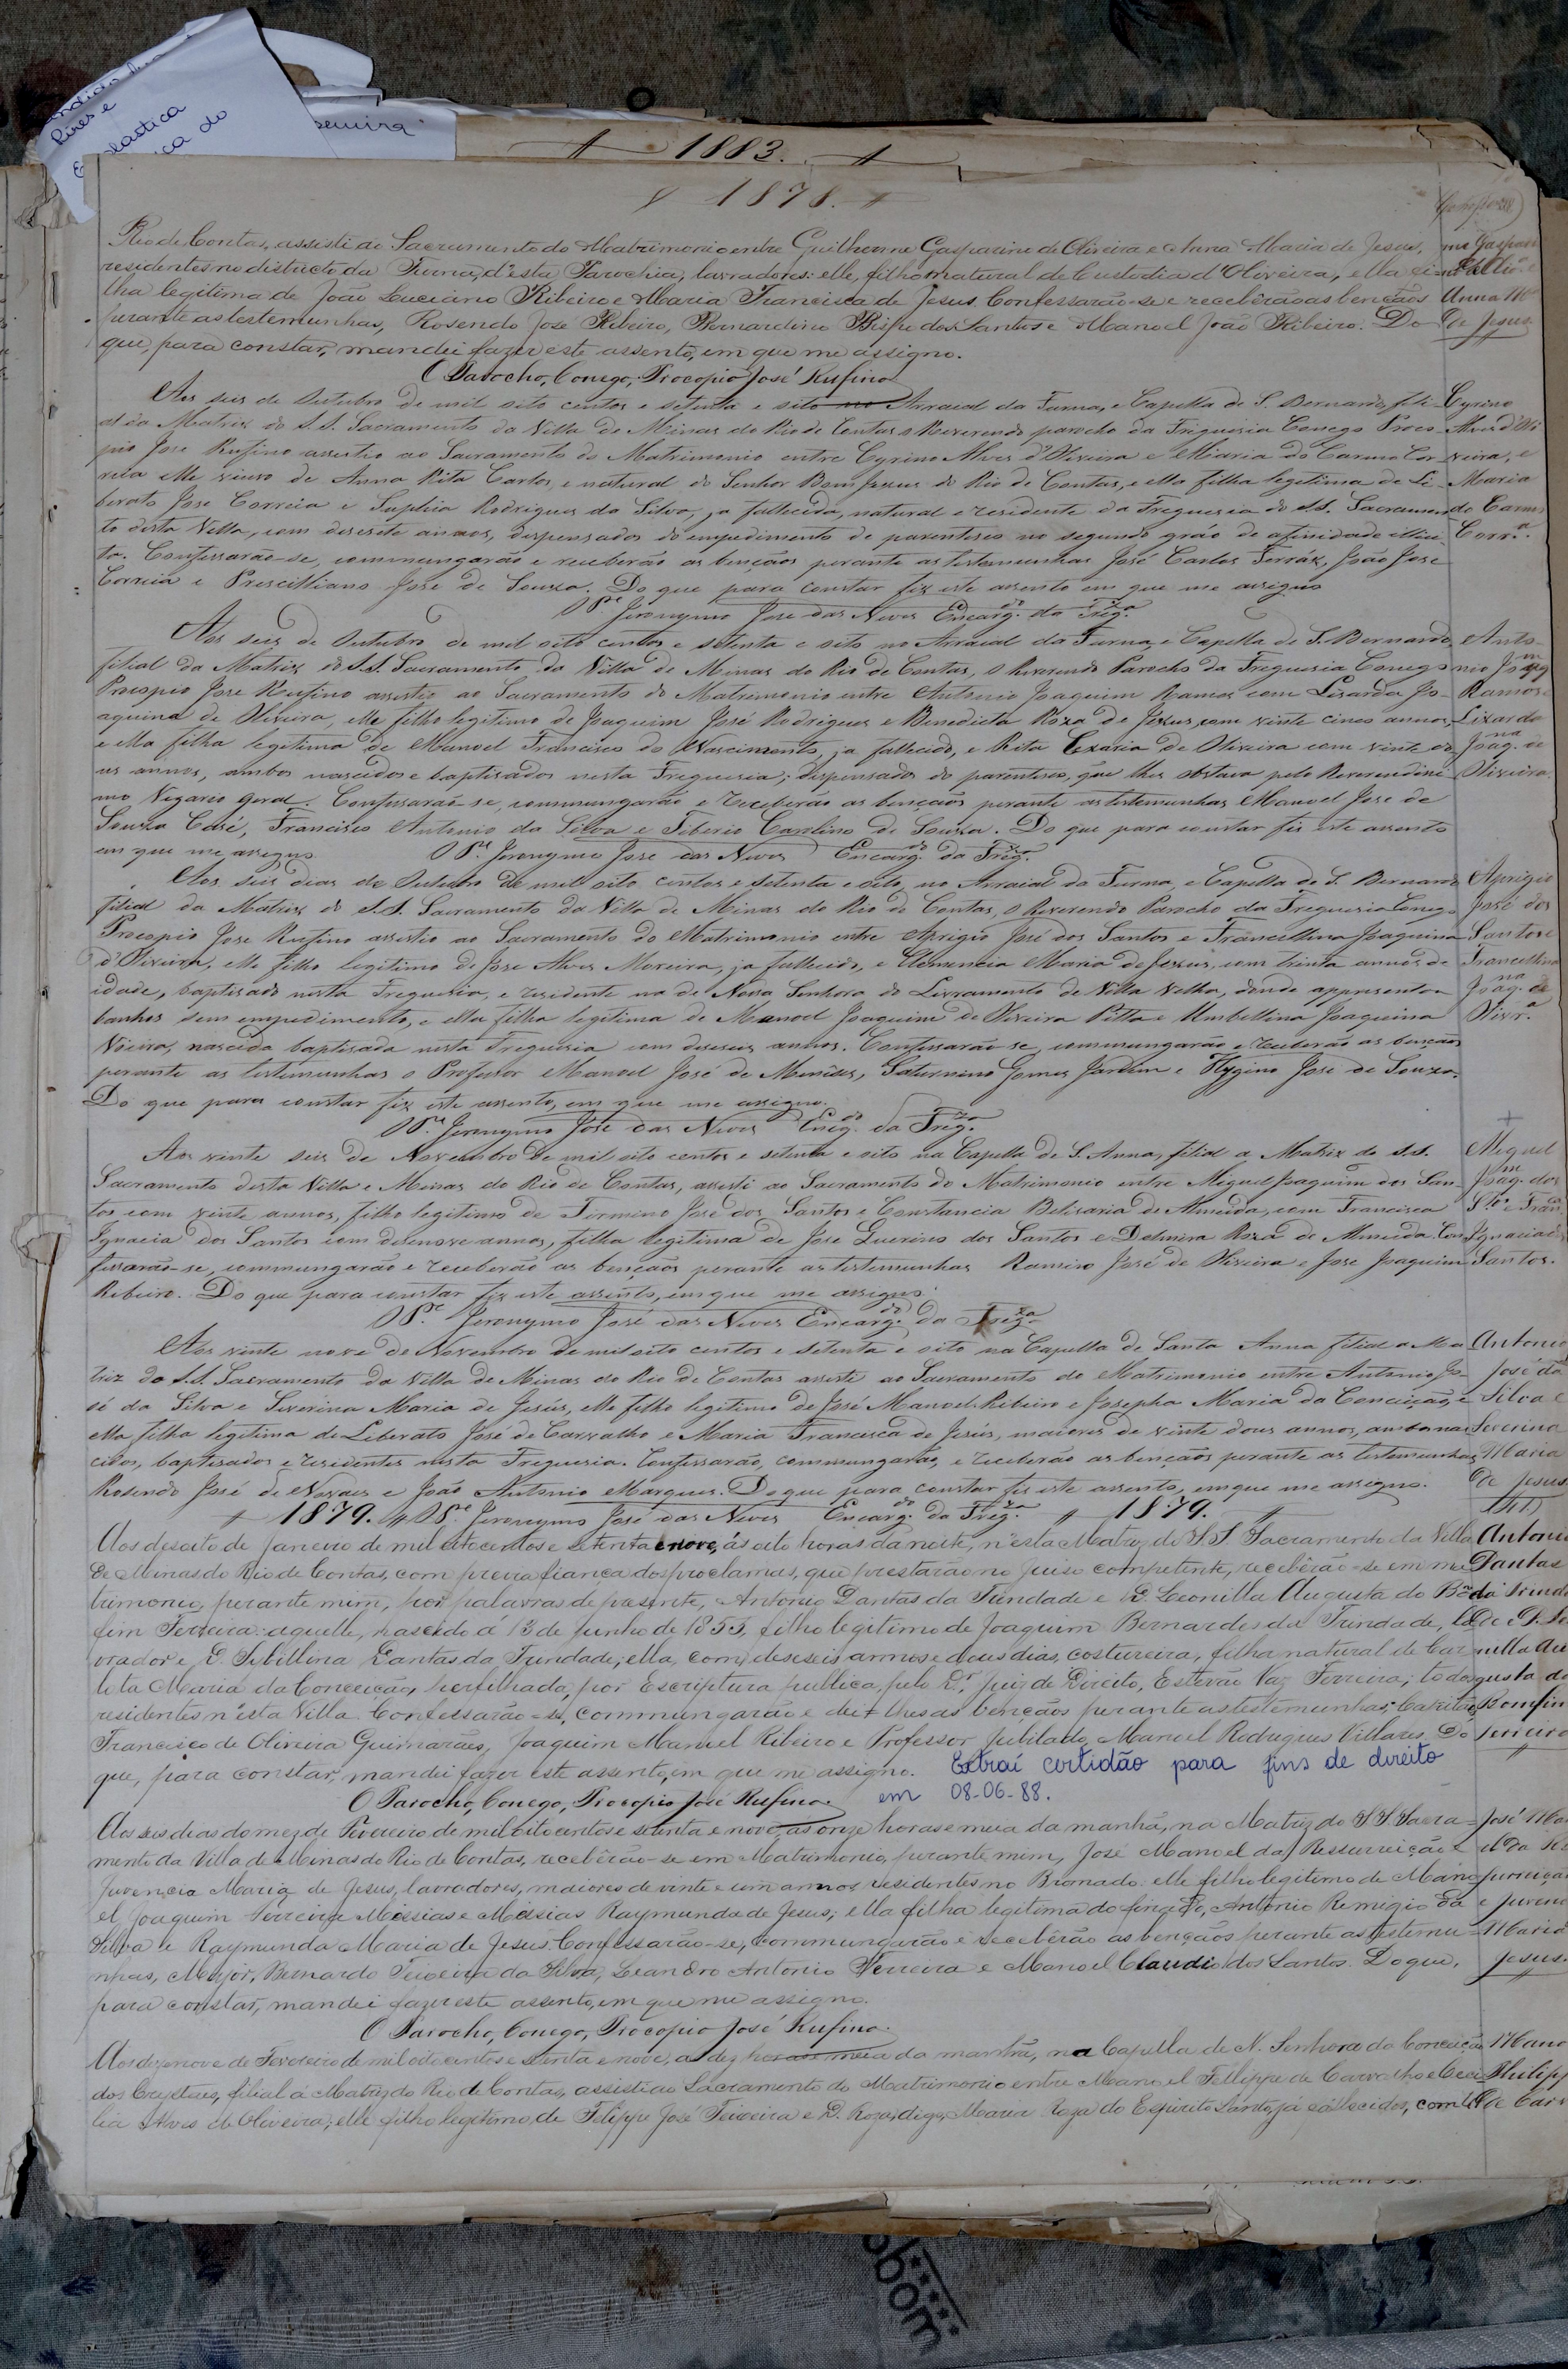 1883.
1878.
Rio de Contas, assisti ao Sacramento do Matrimonio entre Guilherme Gasparino de Oliveira e Anna Maria de Jesus,
residentes no districto da Furna, d'esta Parochia, lavradores: elle, filho natural de Custodia d'Oliveira, ella fi
lha legitima de João Luciano Ribeiro e Maria Francisca de Jesus. Confessarão-se e recebêrão as bençãos
perante as testemunhas, Rosendo José Ribeiro, Bernardino Bispo dos Santos e Manoel João Ribeiro. Do
que, para constar, mandei fazer este assento, em que me assigno.
O Parocho, Conego, Procopio José Rufino
Aos seis de Outubro de mil oito centos e setenta e oito no Arraial da Furna, e Capella de S. Bernardo, fili-
al da Matriz do S.S. Sacramento da Villa de Minas do Rio de Contas o Reverendo parocho da Freguesia Conego Proco-
pio Jose Rufino assistio ao Sacramento do Matrimonio entre Cyrino Alves d'Oliveira e Maria do Carmo Cor-
reia elle viuvo de Anna Rita Carlos, e natural do Senhor Bom Jesus do Rio de Contas, e ella filha legitima de Li-
berato Jose Correia e Suphia Rodrigues da Silva, ja fallecida, natural e residente da Freguesia do S.S. Sacramen-
to desta Villa, com desesete annos, dispensados do empedimento de parentesco no segundo gráo de afinidade illici-
ta. Confessarão-se, commungarão e receberão as bençãos perante as testemunhas José Carlos Ferráz, João Jose
Correia e Prescilliano Jose de Souza. Do que para constar fiz este assento em que me assigno
O P.e Jeronymo Jose das Neves Encarg.do da Freg.za
Aos seis de Outubro de mil oito centos e setenta e oito no Arraial da Furna, e Capella de S. Bernardo,
filial da Matriz do S.S. Sacramento da Villa de Minas do Rio de Contas, o Reverendo Parocho da Freguesia Conego
Procopio Jose Rufino assistio ao Sacramento do Matrimonio entre Antonio Joaquim Ramos com Lisarda Jo-
aquina de Oliveira, elle filho legitimo de Joaquim José Rodrigues e Benedicta Roza de Jezus, com vinte cinco annos,
e ella filha legitima de Manoel Francisco do Nascimento, ja fallecido, e Rita Cezaria de Oliveira com vinte do-
us annos, ambos nascidos e baptisados nesta Freguesia; dispensados do parentesco, que lhes obstava pelo Reverendissi-
mo Vigario Geral. Confessarão-se, commungarão e receberão as bençãos perante as testemunhas Manoel Jose de
Souza Casé, Francisco Antonio da Silva e Tiberio Carolino de Souza. Do que para constar fiz este assento
em que me assigno. O P.e Jeronymo José das Neves Encarg.do da Freg.za
Aos seis dias de Outubro de mil oito centos e setenta e oito no Arraial da Furna, e Capella de S. Bernardo
filial da Matriz do S.S. Sacramento da Villa de Minas do Rio de Contas, o Reverendo Parocho da Freguesia Conego
Procopio Jose Rufino assistio ao Sacramento do Matrimonio entre Aprigio José dos Santos e Francellina Joaquina
d'Oliveira, elle filho legitimo de Jose Alves Moreira, ja fallecido, e Clemencia Maria de Jezus, com trinta annos de
idade, baptisado nesta Freguesia, e residente na de Nossa Senhora do Livramento de Villa Velha, donde appresentou
banhos sem empedimento, e ella filha legitima de Manoel Joaquim de Oliveira Pitta e Umbellina Joaquina
Vieira, nascida baptisada nesta Freguesia com deseseis annos. Confessarão-se, commungarão e receberão as bençãos
perante as testemunhas o Professor Manoel José de Menêses, Saturnino Gomes Jardim e Hygino José de Souza.
Do que para constar fiz este assento, em que me assigno.
O P.e Jeronymo José das Neves Encg.do da Freg.za
Aos vinte seis de Novembro de mil oito centos e setenta e oito na Capella de S. Anna, filial a Matriz do S.S.
Sacramento desta Villa e Minas do Rio de Contas, assisti ao Sacramento do Matrimonio entre Miguel Joaquim dos San-
tos com vinte annos, filho legitimo de Firmino José dos Santos e Constancia Belisaria de Almeida, com Francisca
Ignacia dos Santos com desenove annos, filha legitima de Jose Querino dos Santos e Delmira Roza de Almeida. Con-
fessarão-se, commungarão e receberão as bençãos perante as testemunhas Ramiro José de Oliveira e Jose Joaquim
Ribeiro. Do que para constar fiz este assento, em que me assigno.
O P.e Jeronymo José das Neves Encarg.do da Freg.za
Aos vinte nove de Novembro de mil oito centos e setenta e oito na Capella de Santa Anna filial a Ma-
triz do S.S. Sacramento da Villa de Minas do Rio de Contas assisti ao Sacramento do Matrimonio entre Antonio Jo-
sé da Silva e Severina Maria de Jesús, elle filho legitimo de José Manoel Ribeiro e Josepha Maria da Conceição, e
ella filha legitima de Liberato José de Carvalho e Maria Francisca de Jesús, maiores de vinte dous annos, ambos nas-
cidos, baptisados e residentes nesta Freguesia. Confessarão, commungarão, e receberão as bençãos perante as testemunhas
Rosendo José de Novaes e João Antonio Marques. Do que para constar fiz este assento, em que me assigno.
1879. O P.e Jeronymo José das Neves Encarg.do da Freg.za 1879.
Aos desoito de Janeiro de mil oitocentos e setenta e nove, ás oito horas da noite, n'esta Matriz do S.S. Sacramento da Villa
de Minas do Rio de Contas, com previa fiança dos proclamas, que prestarão no Juiso competente, recebêrão-se em ma-
trimonio, perante mim, por palavras de presente, Antonio Dantas da Trindade e D. Leonilla Augusta do Bom
fim Ferreira: aquelle, nascido á 13 de Junho de 1855, filho legitimo de Joaquim Bernardes da Trindade, la
vrador e D. Sibillina Dantas da Trindade; ella, com deseseis annos e dous dias, costureira, filha natural de Car
lota Maria da Conceição, perfilhada, por Escriptura publica, pelo D.r Juiz de Direito, Estevão Vaz Ferreira; todos
residentes n'esta Villa. Confessarão-se, commungarão e dei-lhes as bençãos perante as testemunhas, Capitão
Francisco de Oliveira Guimarães, Joaquim Manuel Ribeiro e Professor jubilado, Manoel Rodrigues Villares. Do
que, para constar, mandei fazer este assento, em que me assigno. Extraí certidão para fins de direito
O Parocho, Conego, Procopio José Rufino. em 08-06-88.
Aos seis dias do mez de Fevereiro de mil oitocentos e setenta e nove, as onze horas e meia da manhã, na Matriz do S.S. Sacra-
mento da Villa de Minas do Rio de Contas, recebêrão-se em Matrimonio, perante mim, José Manoel da Ressurreição e
Juvencia Maria de Jesus, lavradores, maiores de vinte e um annos residentes no Bromado: elle filho legitimo de Mano
el Joaquim Ferreira Messias e Messias Raymunda de Jesus; ella filha legitima do finado, Antonio Remigio da
Silva e Raymunda Maria de Jesus. Confessarão-se, commungarão e recebêrão as bençãos perante as testemu-
nhas, Major, Bernardo Teixeira da Silva, Leandro Antonio Ferreira e Manoel Claudio dos Santos. Do que,
para constar, mandei fazer este assento, em que me assigno.
O Parocho, Conego, Procopio José Rufino.
Aos desenove de Fevereiro de mil oitocentos e setenta e nove, as dez horas e meia da manhã, na Capella de N. Senhora da Conceição
dos Creoulos, filial á Matriz do Rio de Contas, assisti ao Sacramento do Matrimonio entre Manoel Fellippe de Carvalho e Ceci
lia Alves de Oliveira; elle filho legitimo de Felippe José Teixeira e D. Roza, digo, Maria Roza do Espirito Santo, já fallecidos, com
Anna M.a
de Jesus
Cyrino
Alves d'Oli
veira, e
Maria
do Carmo
Corr.a
Anto-
nio Joaq.m
Ramos e
Lizarda
Joaq.na de
Oliveira
Aprigio
José dos
Santos e
Francellina
Joaq.na de
Olivr.a
Miguel
Joaq.m dos
S.tos e Fran.ca
Ignacia d
Santos.
Antonio
José da
Silva e
Severina
Maria
de Jesus
Antonio
Dantas
da Trind
de e D. Le
nilla Au
gusta do
Bomfim
Ferreira
José Ma
el da Re
surreição
e Juvenc
Maria
Jesus.
Mano
Philipp
de Carv